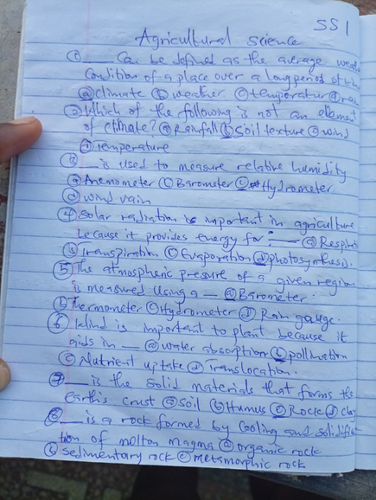 SS 1
Agricultural science
① ___ Can be defined as the average
Condition of a place over a long period of
ⓐ climate ⓑ weather ⓒ temperature ⓓ
② Which of the following is not an element
of climate? ⓐ Rainfall ⓑ Soil texture ⓒ wind
ⓓ temperature
③ ___ is used to measure relative humidity
ⓐ Anemometer ⓑ Barometer ⓒ Hydrometer
ⓓ wind vain
④ Solar radiation is important in agriculture
because it provides energy for: — ⓐ
ⓑ Transpiration ⓒ Evaporation ⓓ photosynthesis.
⑤ The atmospheric pressure of a given region
is measured using a — ⓐ Barometer.
ⓑ Thermometer ⓒ Hydrometer ⓓ Rain gauge.
⑥ Wind is important to plant because it
aids in — ⓐ water absorption ⓑ pollination
ⓒ Nutrient uptake ⓓ Translocation.
⑦ ___ is the solid materials that forms the
earth's crust ⓐ Soil ⓑ Humus ⓒ Rock ⓓ
⑧ ___ is a rock formed by cooling and
of molten magma ⓐ organic rock
ⓑ Sedimentary rock ⓒ metamorphic rock